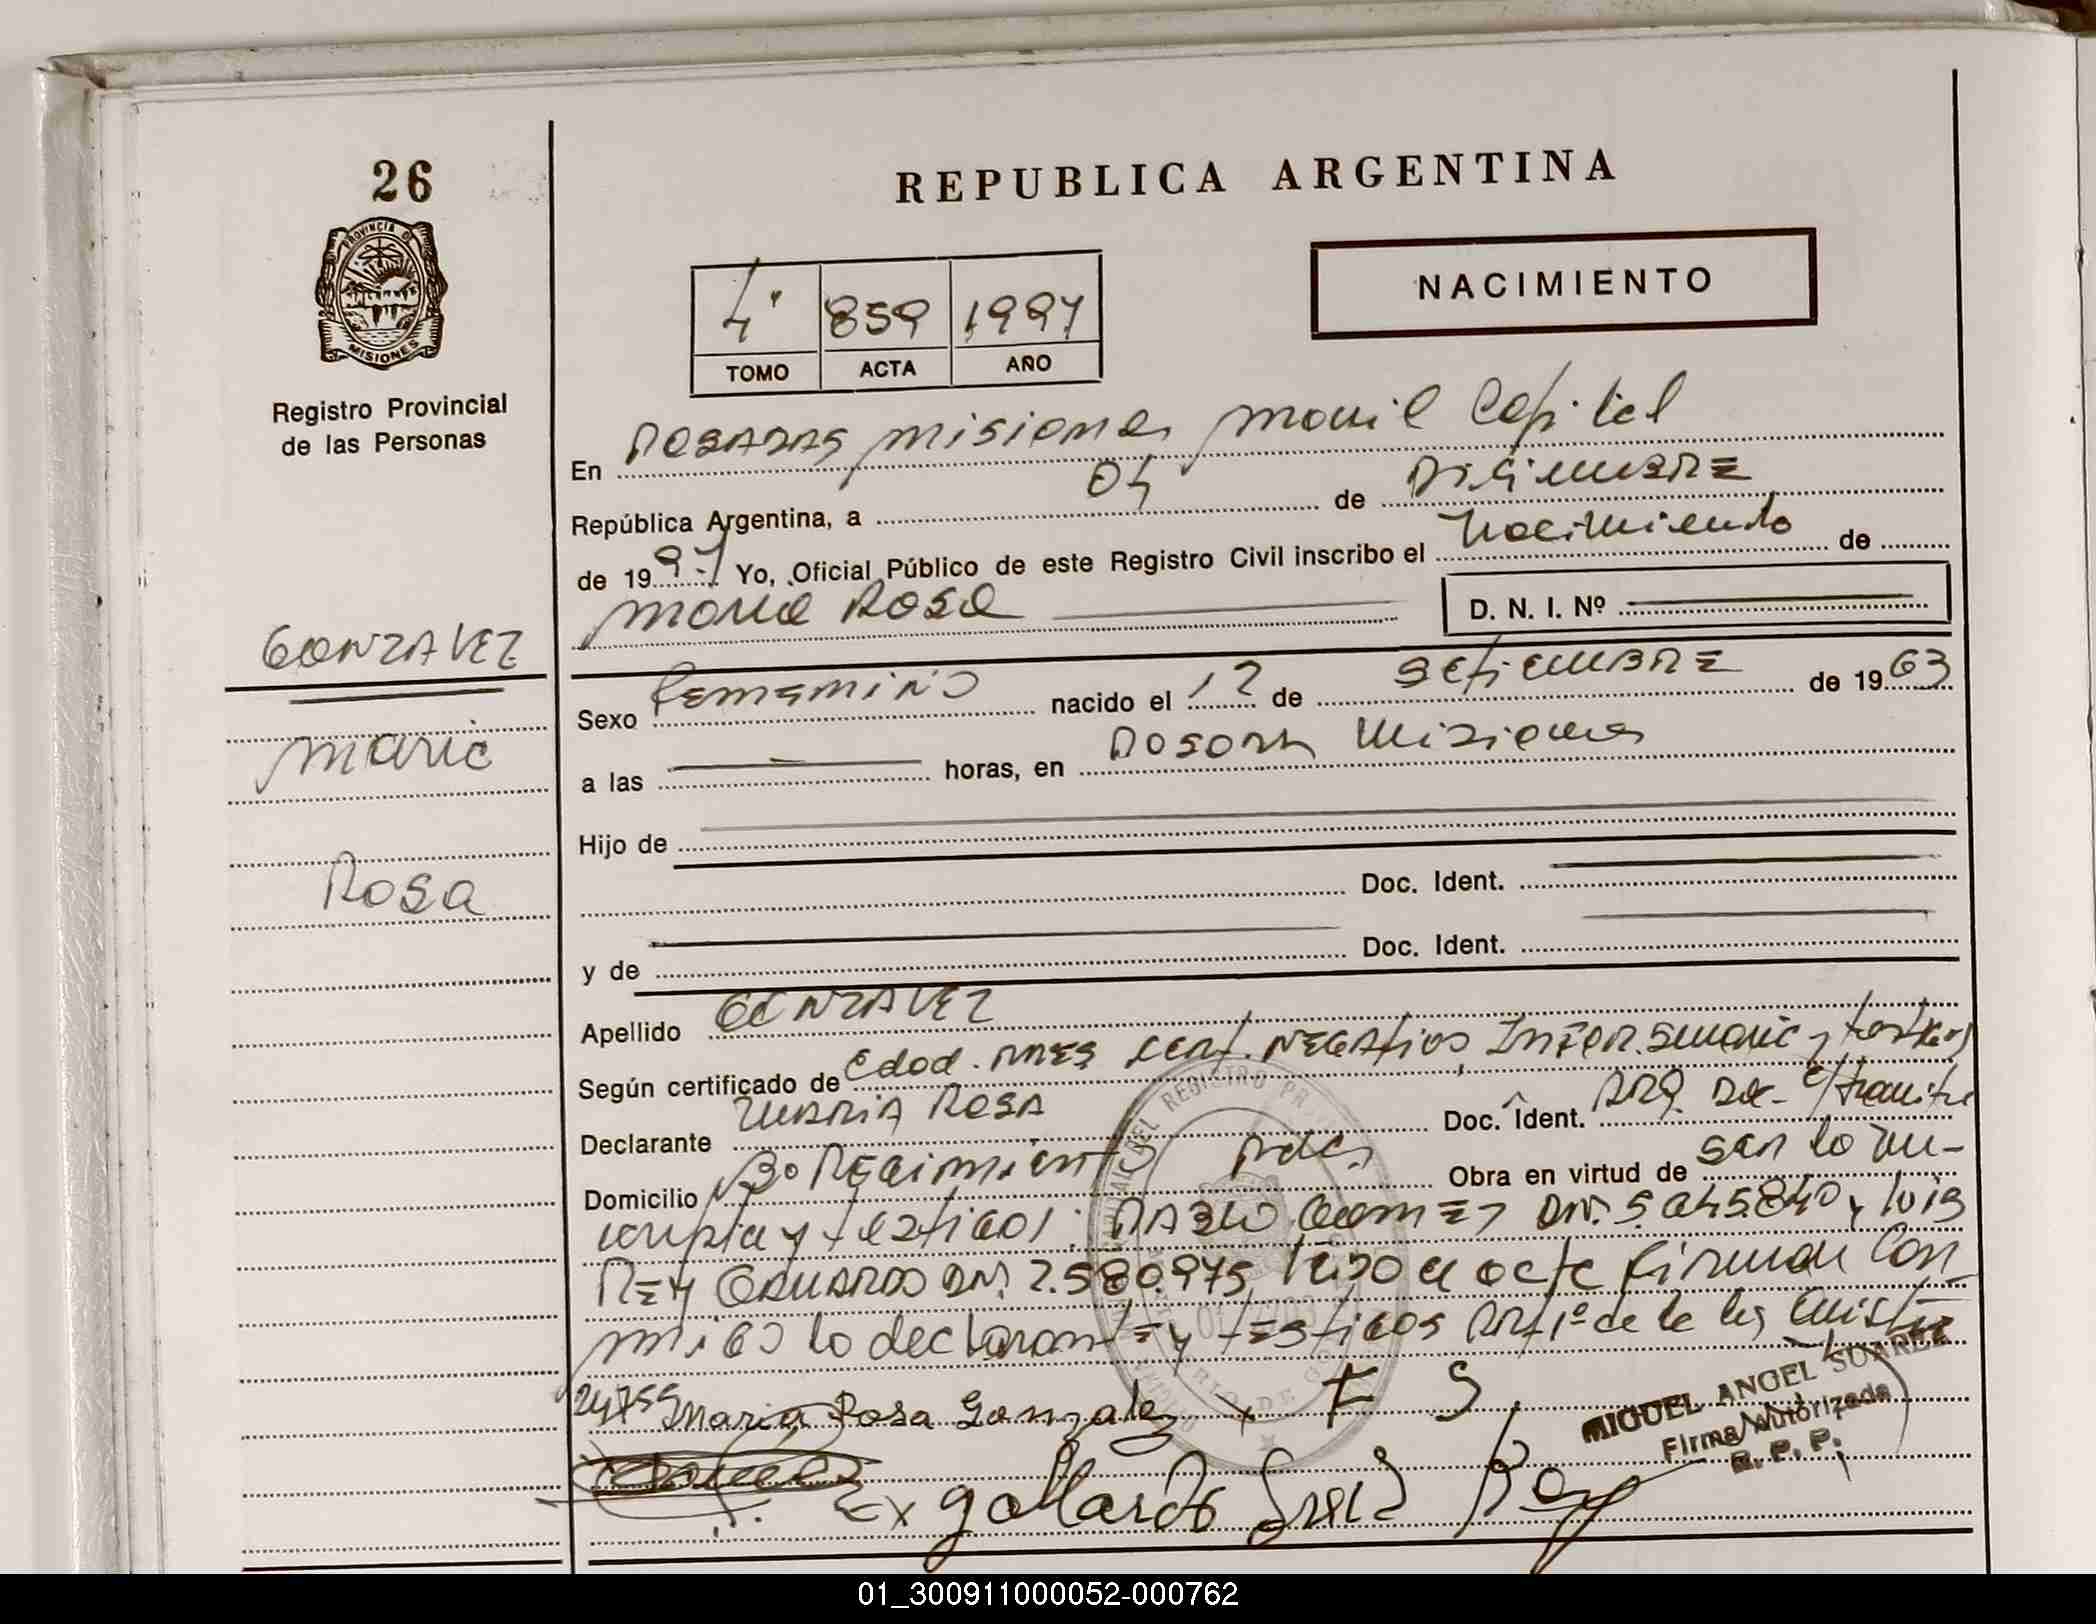 26
REPUBLICA ARGENTINA
PROVINCIA DE
MISIONES
Registro Provincial
de las Personas
NACIMIENTO
4º 859 1997
TOMO ACTA AÑO
En POSADAS Misiones Movil Capital
República Argentina, a 04 de Diciembre
de 1997 Yo, Oficial Público de este Registro Civil inscribo el Nacimiento de
Maria Rosa D. N. I. Nº
GONZALEZ
Maria
Rosa
Sexo Femenino nacido el 12 de Setiembre de 1963
a las horas, en Posadas Misiones
Hijo de
Doc. Ident.
y de Doc. Ident.
Apellido GONZALEZ
Según certificado de Edad. Cert. Negativos, Infor. Sumaria y testigos
Declarante Maria Rosa Doc. Ident. Arg. c/tramite
Domicilio Bº Regimiento Pdas. Obra en virtud de San lo
y testigos: PABLO Gomez DNI. 5.045.840 y Luis
Rey Eduardo DNI. 2.580.975, leido el acta firman Con
migo la declarante y testigos Art 1º de la ley
24755 Maria Rosa Gonzalez x
MIGUEL ANGEL SUAREZ
Firma Autorizada
R. P. P.
gallardo Luis Rey
01_300911000052-000762